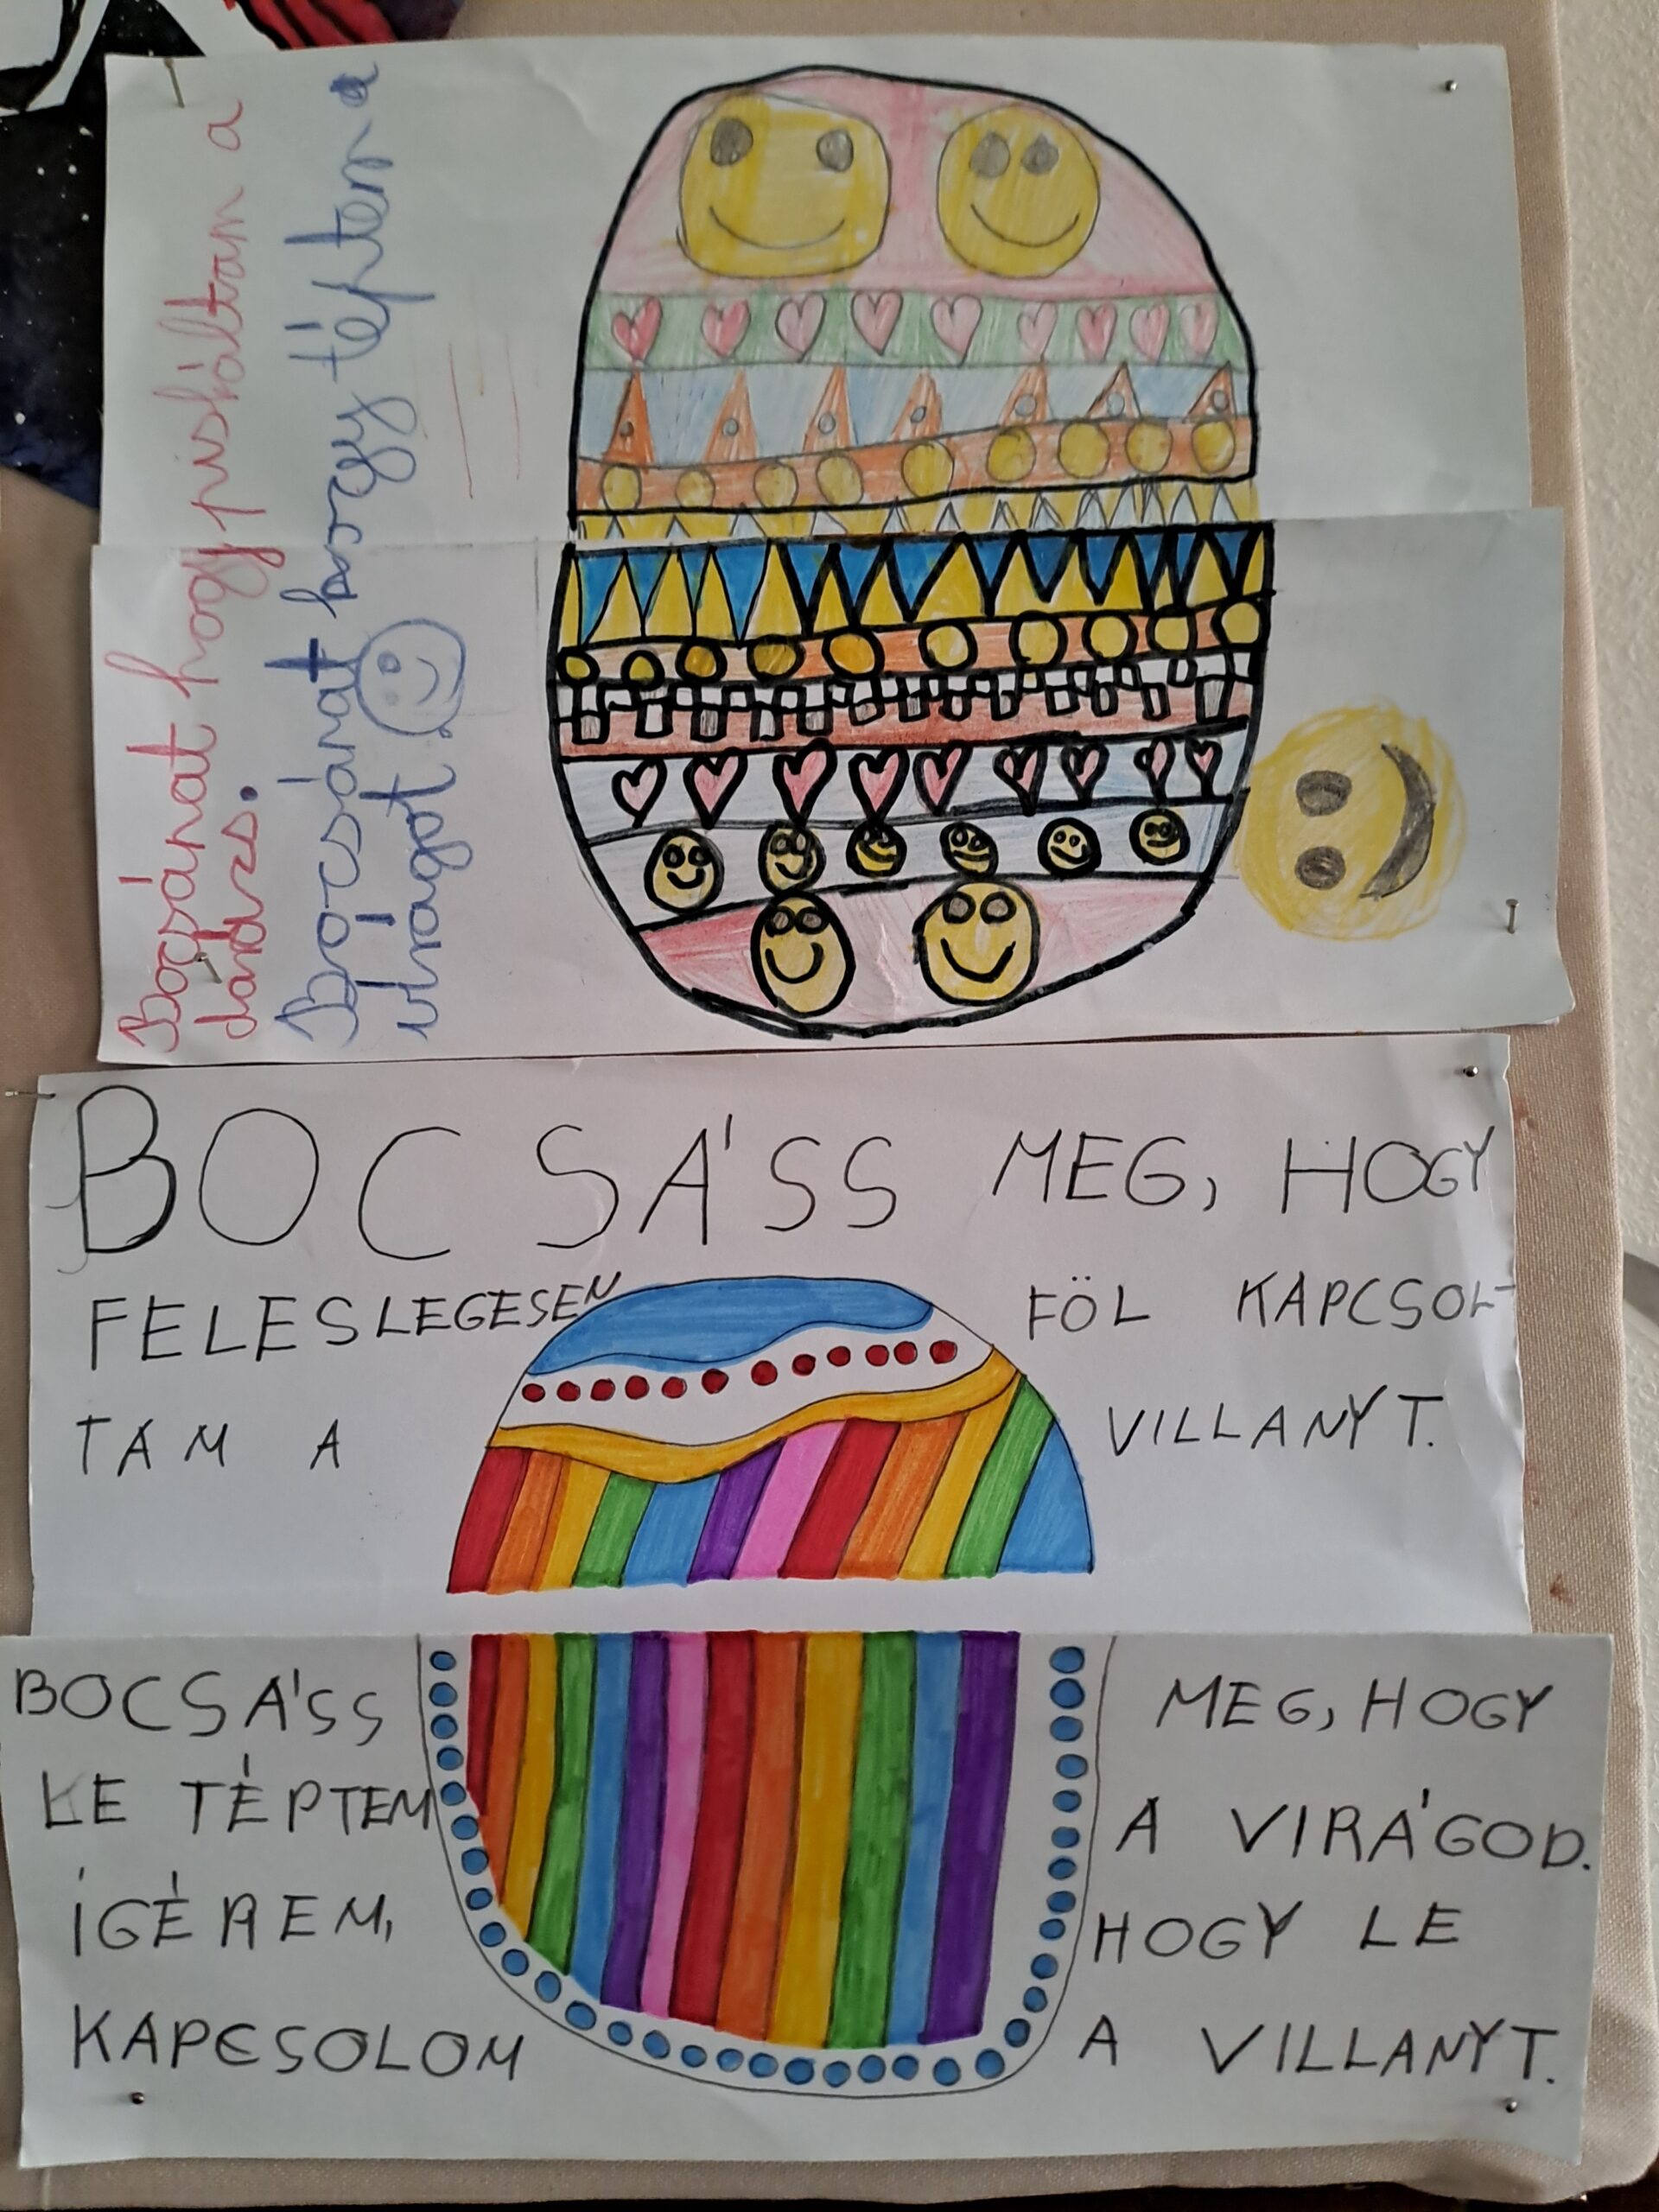 Bocsánat hogy piszkáltam a
darázs.
Bocsánat hogy téptem a
virágot.
BOCSÁSS MEG, HOGY
FELESLEGESEN FÖL KAPCSOL-
TAM A VILLANYT.
BOCSÁSS MEG, HOGY
LE TÉPTEM A VIRÁGOD.
ÍGÉREM, HOGY LE
KAPCSOLOM A VILLANYT.